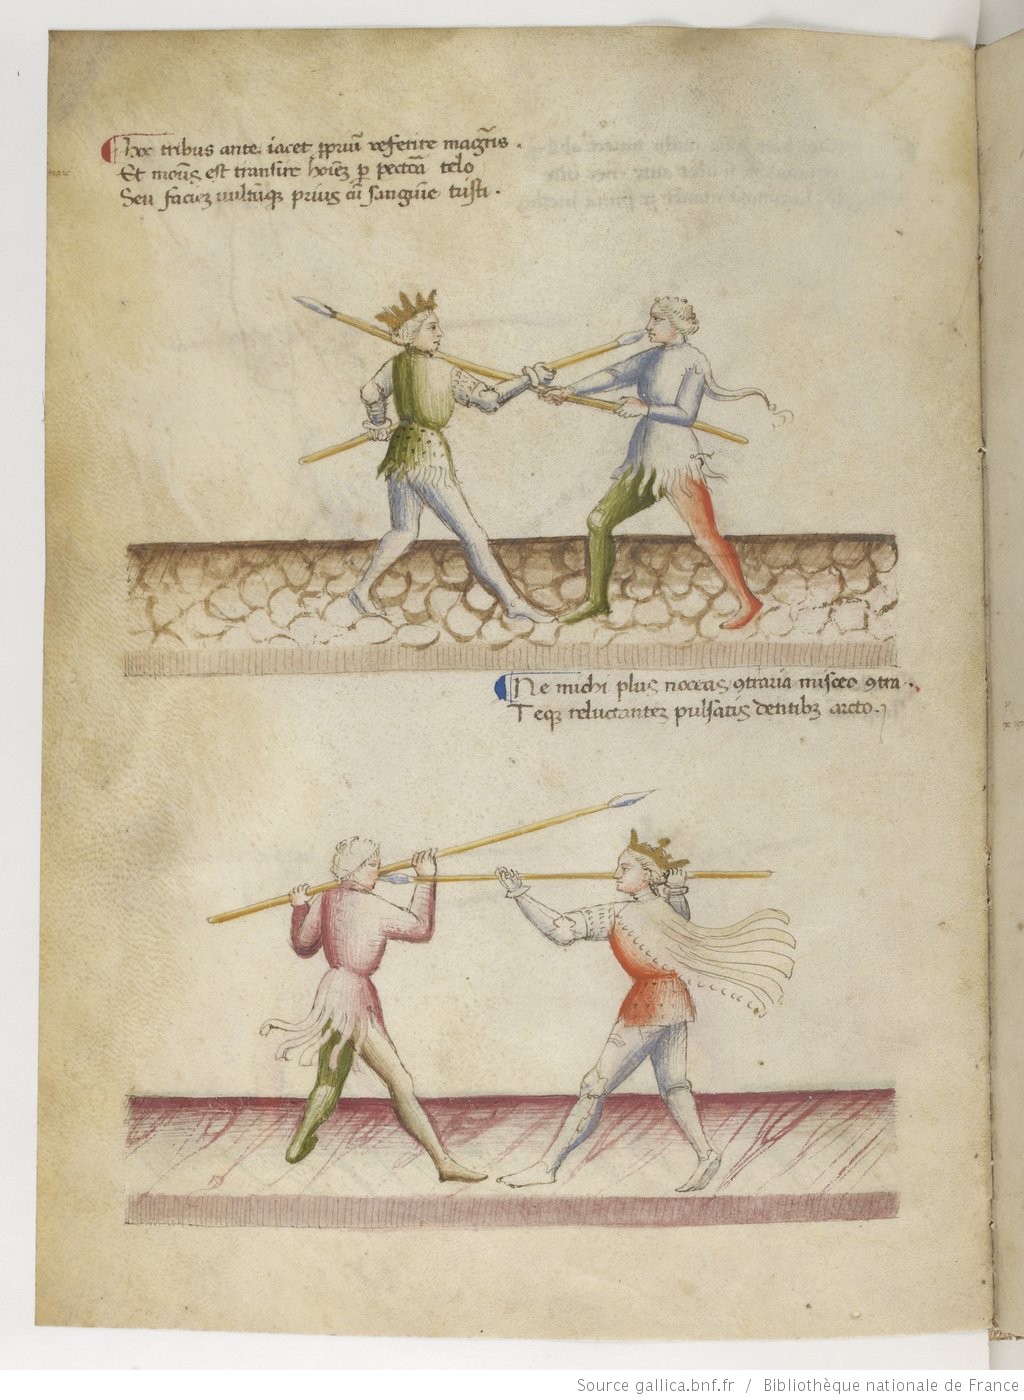 Hoc tribus ante iacet ꝓpriũ referire magr̃is .
Et moũs est transire hoiẽz ꝑ pectͣa telo
Seu faciez uultũqꝫ prius cũ sanguine tristi .
Ne michi plus noceas ꝯtraria misceo ꝯtra .
Teqꝫ reluctantez pulsatis dentibꝫ arcto .
Source gallica.bnf.fr / Bibliothèque nationale de France